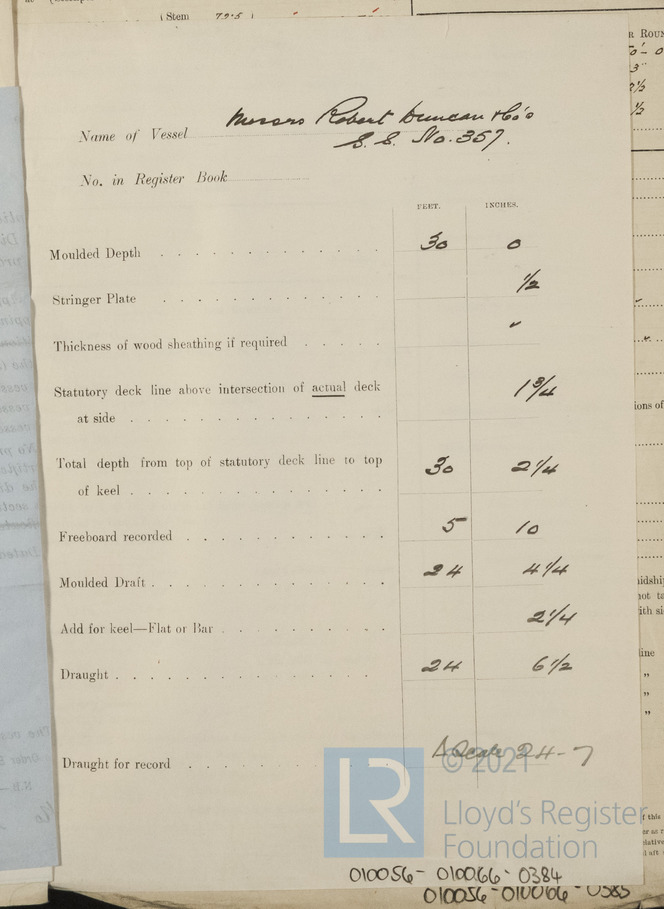 (Stem 79·5)
R ROUN
Name of Vessel Messrs Robert Duncan & Co's
S.S. No. 357.
No. in Register Book
FEET. INCHES.
Moulded Depth 30 0
Stringer Plate ½
Thickness of wood sheathing if required "
Statutory deck line above intersection of actual deck
at side 1¾
Total depth from top of statutory deck line to top
of keel 30 2¼
Freeboard recorded 5 10
Moulded Draft 24 4¼
Add for keel—Flat or Bar 2¼
Draught 24 6½
Draught for record 24-7
© 2021
LR
Lloyd's Register
Foundation
010056-010066-0384
010056-010066-0385
ions of